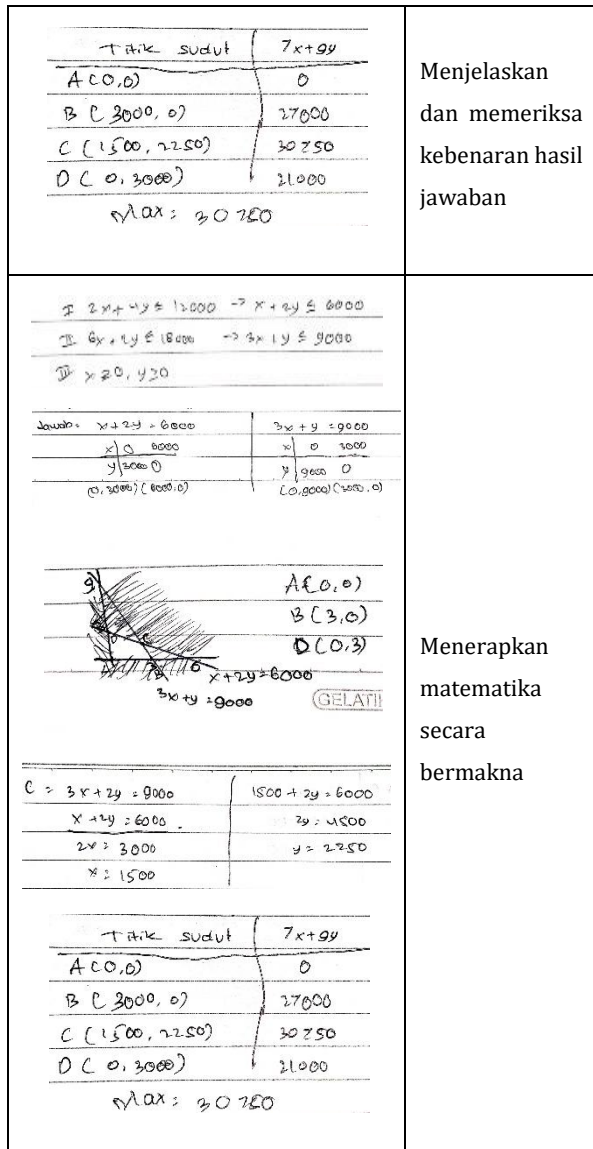 Titik sudut | 7x+9y
A(0,0) | 0
B (3000, 0) | 27000
C (1500, 2250) | 30750
D (0, 3000) | 21000
Max : 30750
Menjelaskan
dan memeriksa
kebenaran hasil
jawaban
I 2x+4y ≤ 12000 -> x+2y ≤ 6000
II 6x+2y ≤ 18000 -> 3x+y ≤ 9000
III x≥0, y≥0
Jawab: x+2y=6000 | 3x+y=9000
x | 0 6000 | x | 0 3000
y | 3000 0 | y | 9000 0
(0,3000) (6000,0) | (0,9000) (3000,0)
A(0,0)
B(3,0)
D(0,3)
9
D
C
B
6
x+2y=6000
3x+y=9000
GELATI
C = 3x+2y=9000 | 1500+2y=6000
x+2y=6000 | 2y=4500
2x=3000 | y=2250
x=1500
Titik sudut | 7x+9y
A(0,0) | 0
B (3000, 0) | 27000
C (1500, 2250) | 30750
D (0, 3000) | 21000
Max : 30750
Menerapkan
matematika
secara
bermakna